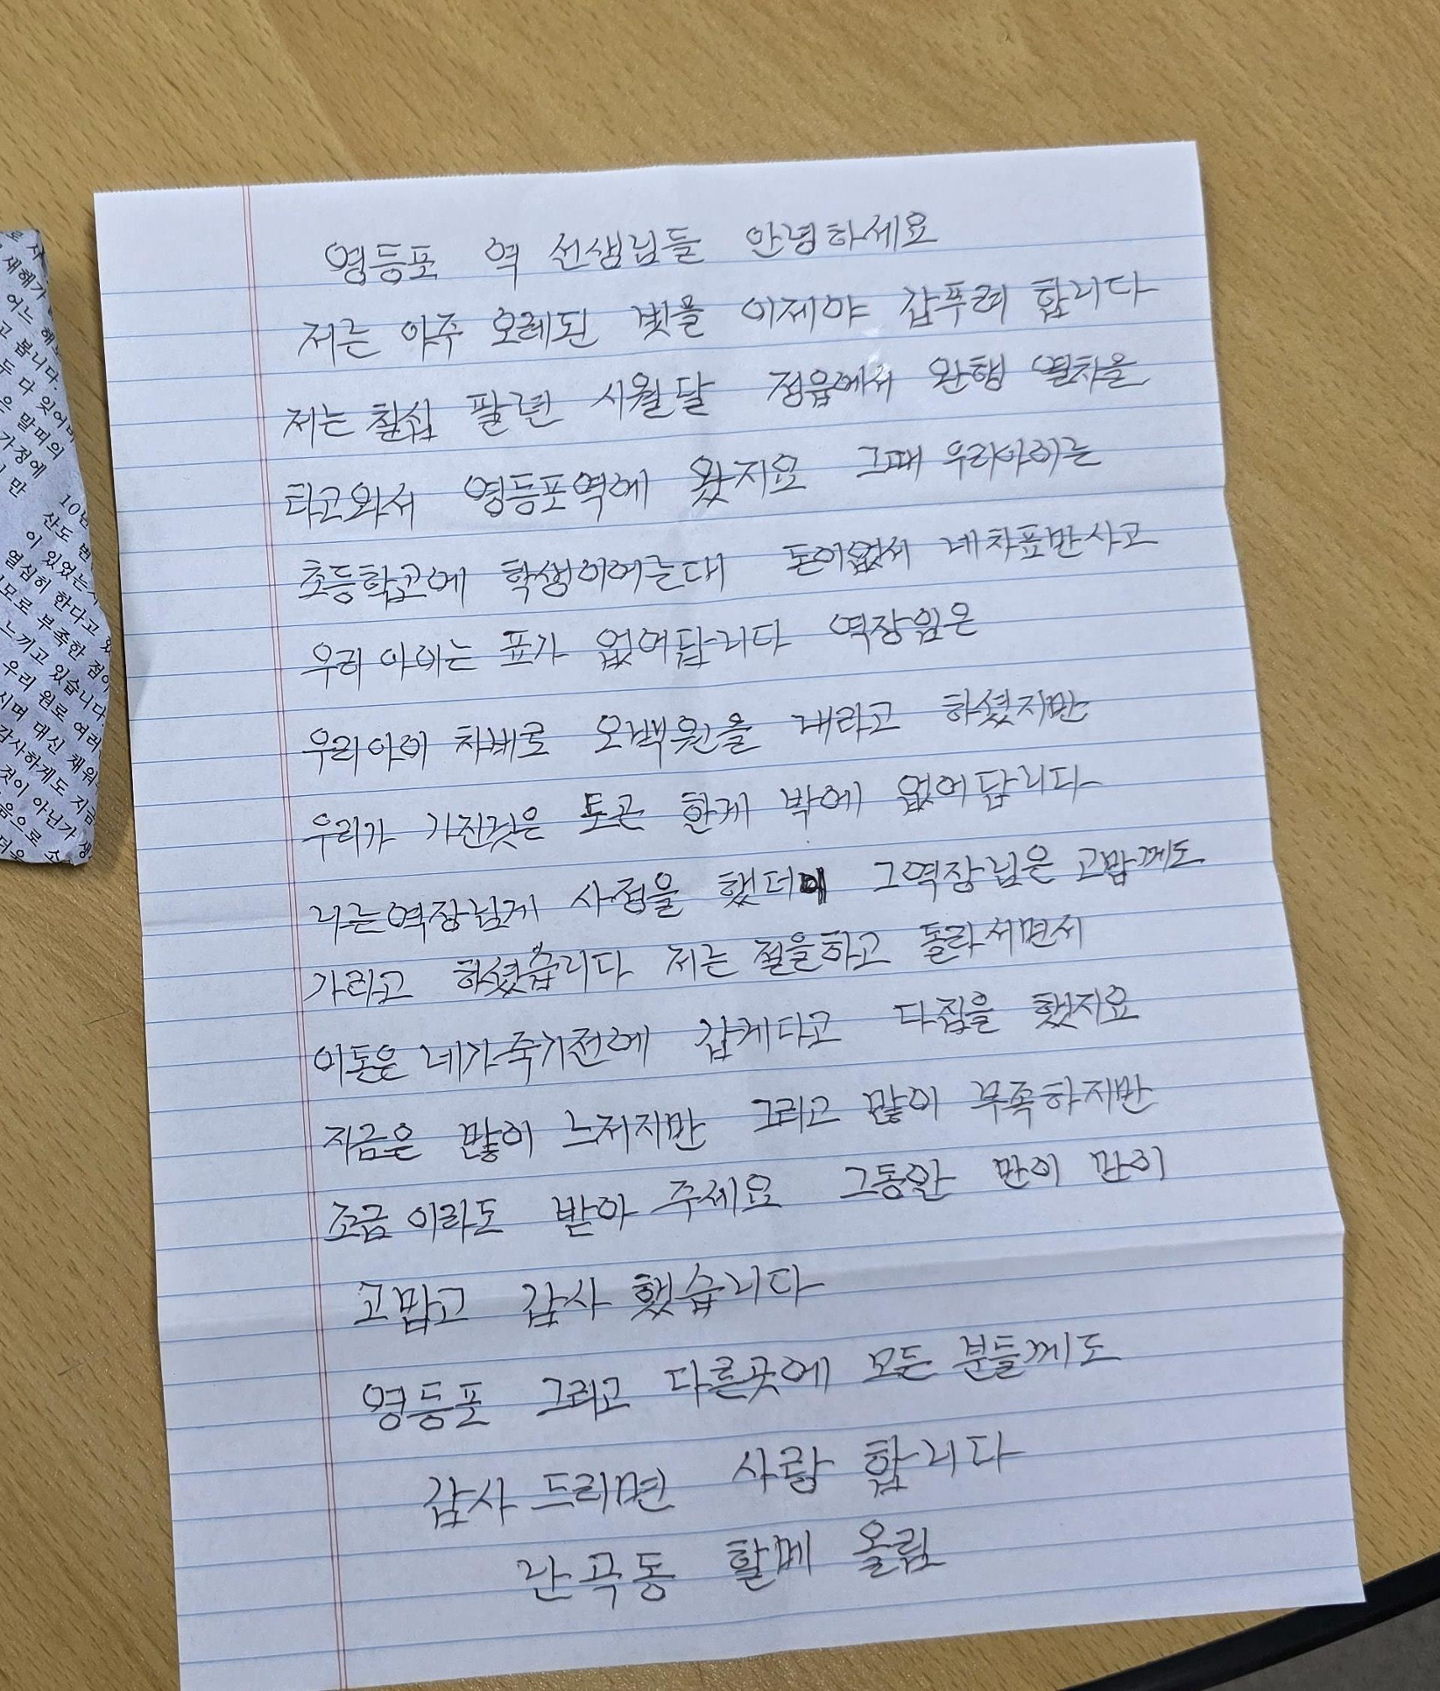 영등포 역 선생님들 안녕하세요
저는 아주 오레된 빛을 이제야 갑푸려 합니다
저는 칠십 팔년 시월달 정읍에서 완행 열차을
타고와서 영등포역에 왔지요 그때 우리아이는
초등학교에 학생이어는대 돈이없서 네차표만사고
우리 아이는 표가 없어답니다 역장임은
우리아이 차비로 오백원을 내라고 하셨지만
우리가 가진것은 토큰 한게 밖에 없어답니다
나는역장님게 사정을 했더이 그역장님은 고맙께도
가라고 하셨습니다 저는 절을하고 돌라서면서
이돈은 네가죽기전에 갑게다고 다짐을 했지요
지금은 많이 느저지만 그리고 많이 부족하지만
조금이라도 받아 주세요 그동안 만이 만이
고맙고 감사 했습니다
영등포 그리고 다른곳에 모든 분들께도
감사 드리면 사랑 합니다
난곡동 할메 올림
재해가
어느 해
고 봅니다.
두 다 잊어
은 말띠의
가정에
만
10년
산도
이 있었는
열심히 한다고
므로 부족한 점이
느끼고 있습니다
우리 원로 여러
시며 대신 채워
감사하게도 지금
것이 아닌가 생
음으로 소
더욱